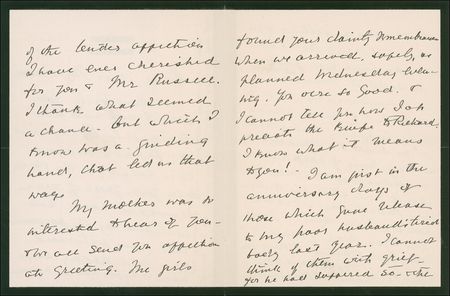 of the tender affection
I have ever cherished
for you & Mr Russell.
I thank what seemed
a chance. but which I
know was a guiding
hand, that led us that
way
My Mother was so
interested to hear of you -
& we all send you affection
ate greeting. The girls
found your dainty remembrance
when we arrived, safely, as
planned Wednesday Even-
ing. You were so Good. &
I cannot tell you how I ap
preciate the Knife to Richard.
I know what it means
to you! - I am just in the
anniversary days of
those which gave release
to my poor husband's tired
body last year. I cannot
think of them with grief -
for he had suffered so - & the